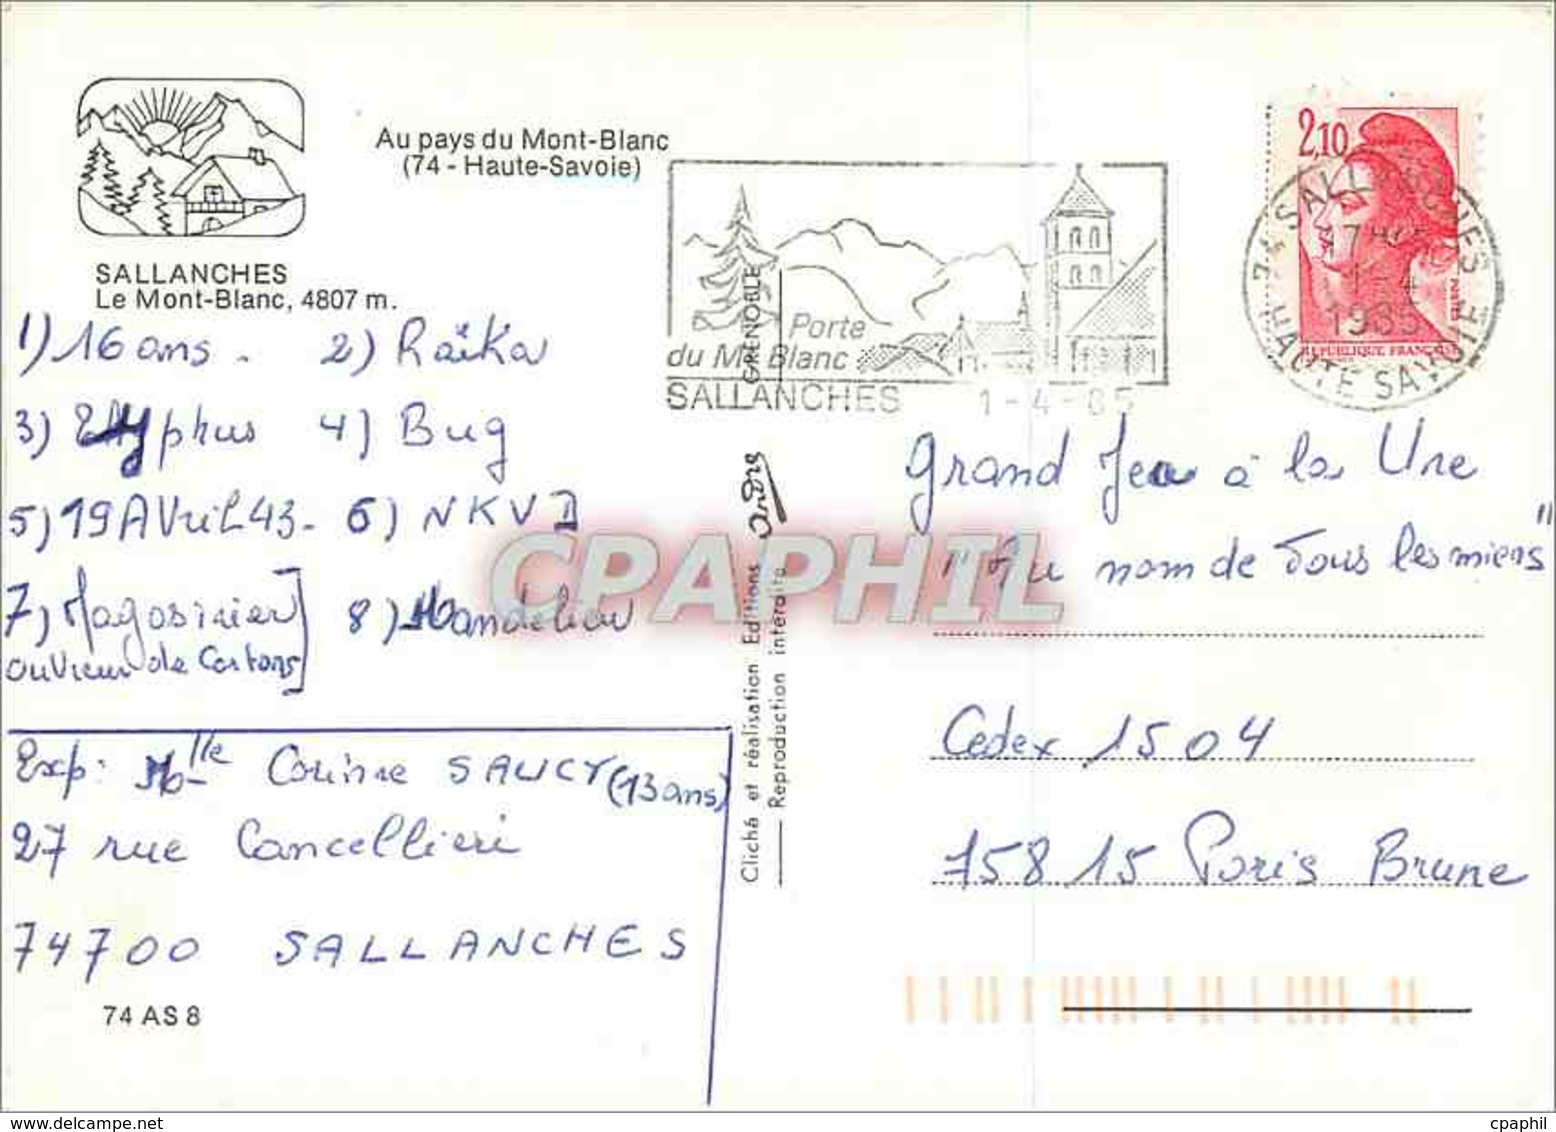 Au pays du Mont-Blanc
(74 - Haute-Savoie)
SALLANCHES
Le Mont-Blanc, 4807 m.
1) 16 ans. 2) Raïka
3) Typhus 4) Bug
5) 19 AVril 43 - 6) NKVD
7) Magasinier 8) Mandelieu
ouvrier de Cartons
Exp: Mlle Corinne SAUCY (13 ans)
27 rue Cancellieri
74700 SALLANCHES
74 AS 8
GRENOBLE
André
Cliché et réalisation Editions
Reproduction interdite
Porte
du Mt Blanc
SALLANCHES 1-4-85
2,10
POSTES
REPUBLIQUE FRANÇAISE
74 SALLANCHES
17H
1-4
1985
HAUTE SAVOIE
Grand Jeu à la Une
"Au nom de Tous les miens"
Cedex 1504
75815 Paris Brune
CPAPHIL
cpaphil